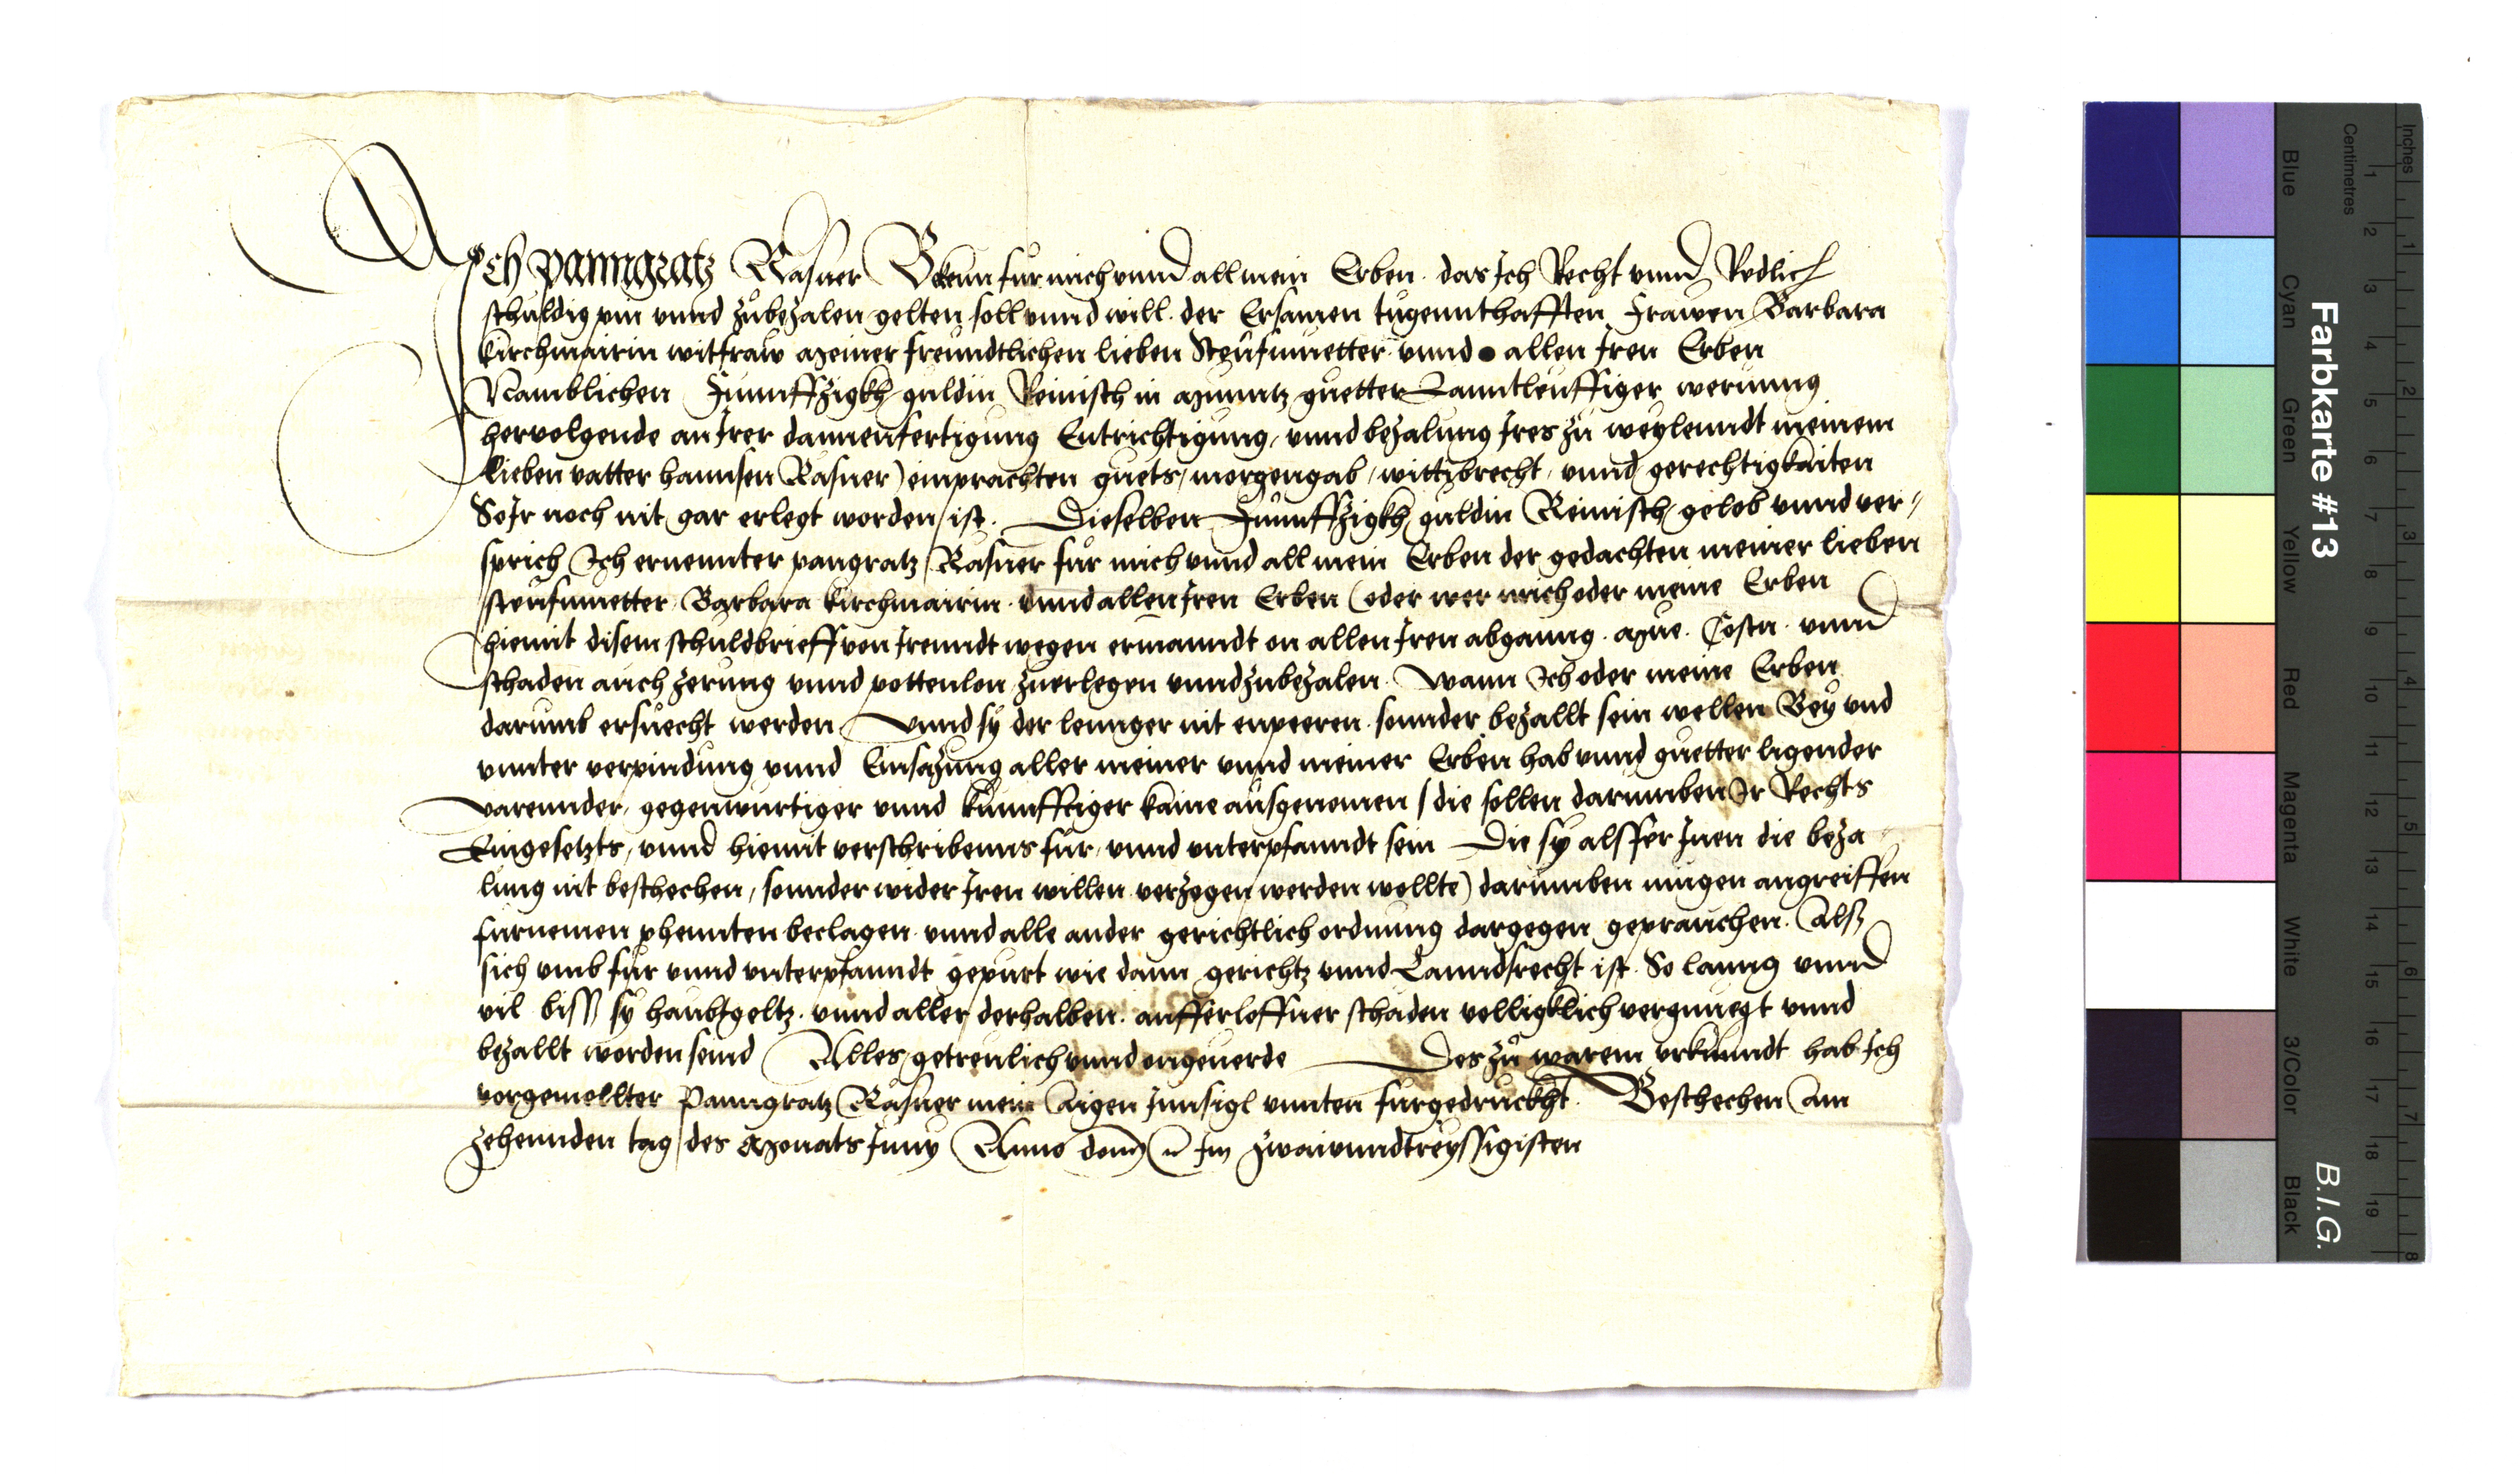 Ich Panngratz Rasner Bekenn für mich unnd all mein Erben. das Ich Recht unnd Redlich
schuldig pin unnd zubezalen gelten soll unnd will. der Ersamen tugennthafften Frawen Barbara
Kirchmairin witfraw Meiner freundtlichen lieben Steufmuetter unnd allen Iren Erben
Namblichen Funnffzigkh guldin Reinisch in Munntz guetter Lanntleuffiger werunng
hervolgende an Irer dannenfertigung Entrichtigung, unnd bezalung Ires zu weylenndt meinem
lieben vatter hannsen Rasner) einprachten guets, morgengab, wittibrecht, unnd gerechtigkaiten
So Ir noch nit gar erlegt worden ist. Dieselben Funnffzigkh guldin Reinisch, gelob unnd ver-
sprich Ich ernennter pangratz Rasner für mich unnd all mein Erben der gedachten meiner lieben
steufmuetter Barbara Kirchmairin. unnd allen Iren Erben (oder wer mich oder meine Erben
hiemit disem schuldbrieff von Irenndt wegen ermanndt on allen Iren abganng. Mue. Costn. unnd
schaden auch zerung unnd pottenlon zuerlegen unnd zubezalen. Wann Ich oder meine Erben
darumb ersuecht werden, Unnd sy der lennger nit enpeeren. sonnder bezallt sein wellen Bey und
unnter verpindung unnd Einsazung aller meiner unnd meiner Erben hab unnd guetter ligender
varennder, gegenwurtiger unnd kunnfftiger kaine ausgenomen / die sollen darumben Ir Rechts
Eingesetzts, unnd hiemit verschribenns für, unnd unterpfanndt sein Die sy als fer Inen die beza-
lung nit beschechen, sonnder wider Iren willen verzogen werden wollte) darumben mugen angreiffen
furnemen phennten beclagen unnd alle ander gerichtlich ordnung dargegen geprauchen. Alss
sich umb fur unnd unterpfanndt gepurt wie dann gerichtz unnd Lanndsrecht ist. So lanng unnd
vil biss sy haubtgeltz. unnd aller derhalben. aufferloffner schaden volligklich vergnuegt unnd
bezallt worden seind Alles getreulich unnd ongeuerde Des zu warem urkunndt hab Ich
vorgemellter Panngratz Rasner mein Aigen Innsigl unnten furgedruckht. Beschechen Am
zehennden tag des Monats Juny Anno domj im zwaiunndtreyssigisten
Farbkarte #13
B.I.G.
Inches
Centimetres
1 2 3 4 5 6 7 8 9 10 11 12 13 14 15 16 17 18 19
1 2 3 4 5 6 7 8
Blue
Cyan
Green
Yellow
Red
Magenta
White
3/Color
Black